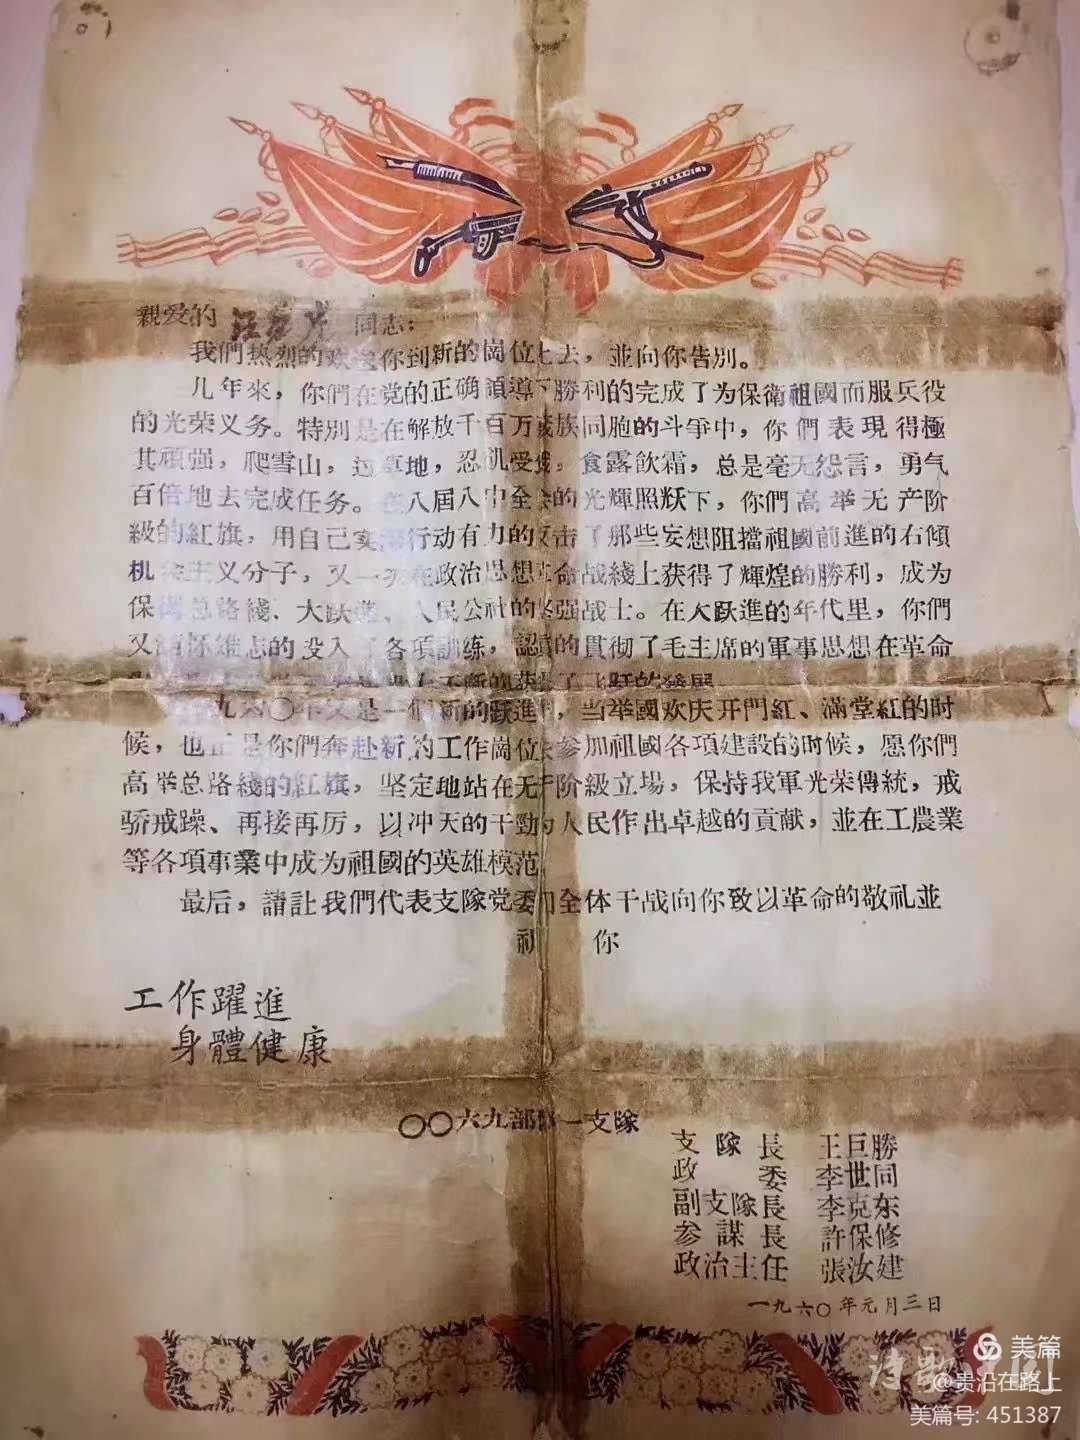 親爱的 同志：
我們热烈的欢送你到新的崗位上去，並向你告別。
几年來，你們在党的正确領導下勝利的完成了为保衛祖國而服兵役
的光荣义务。特別是在解放千百万藏族同胞的斗爭中，你們表現得極
其頑强，爬雪山，过草地，忍飢受餓，食露飲霜，总是毫无怨言，勇气
百倍地去完成任务。在八届八中全会的光輝照䟮下，你們高举无产阶
級的紅旗，用自己实际行动有力的反击了那些妄想阻擋祖國前進的右傾
机会主义分子，又一次在政治思想革命战綫上获得了輝煌的勝利，成为
保衛总路綫、大跃進、人民公社的坚强战士。在大跃進的年代里，你們
又滿怀雄志的投入了各項訓练，認眞的貫彻了毛主席的軍事思想在革命
不断的获得了 跃的發展。
一九六〇年又是一個新的跃進年，当举國欢庆开門紅、滿堂紅的时
候，也正是你們奔赴新的工作崗位去参加祖國各項建設的时候，愿你們
高举总路綫的紅旗，坚定地站在无产阶級立場，保持我軍光荣傳統，戒
骄戒躁、再接再厉，以冲天的干勁为人民作出卓越的貢献，並在工農業
等各項事業中成为祖國的英雄模范
最后，請让我們代表支隊党委和全体干战向你致以革命的敬礼並
祝 你
工作躍進
身體健康
〇〇六九部隊一支隊
支隊長 王巨勝
政委 李世同
副支隊長 李克东
参謀長 許保修
政治主任 張汝建
一九六〇年元月三日
美篇
诗歌中国
@贵沿在路上
美篇号: 451387